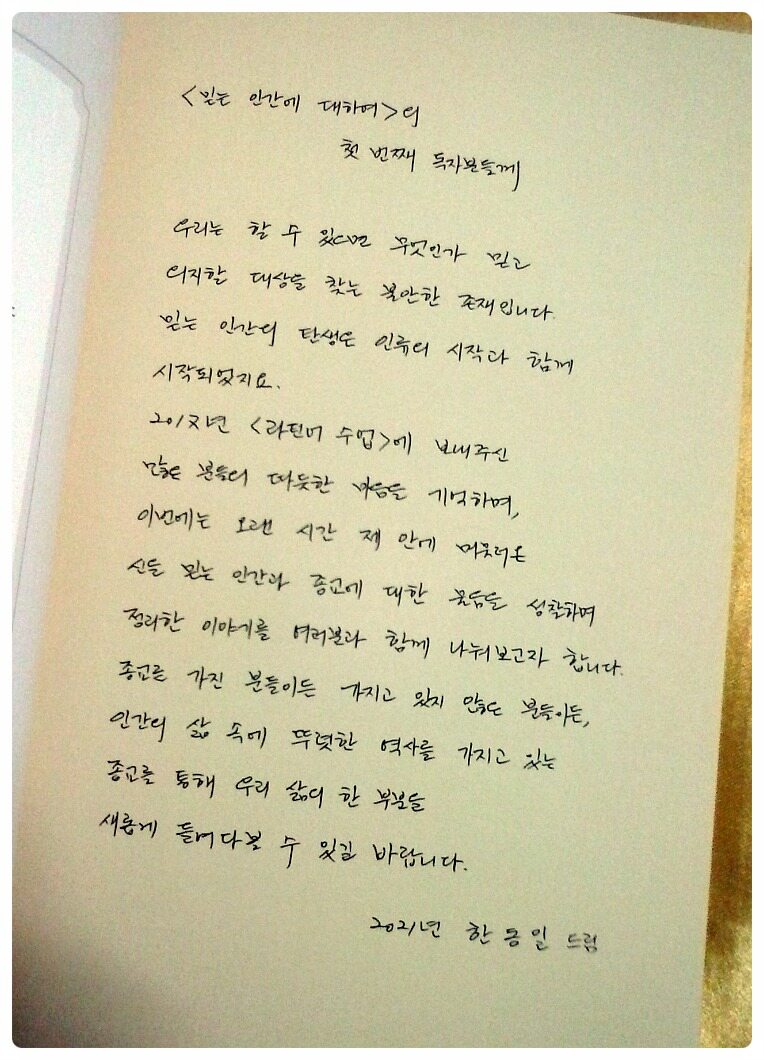 <믿는 인간에 대하여>의
첫 번째 독자분들께
우리는 할 수 있다면 무엇인가 믿고
의지할 대상을 찾는 불안한 존재입니다.
믿는 인간의 탄생은 인류의 시작과 함께
시작되었지요.
2017년 <라틴어 수업>에 보내주신
많은 분들의 따듯한 마음을 기억하며,
이번에는 오랜 시간 제 안에 머물러온
신을 믿는 인간과 종교에 대한 물음을 성찰하며
정리한 이야기를 여러분과 함께 나눠보고자 합니다.
종교를 가진 분들이든 가지고 있지 않은 분들이든,
인간의 삶 속에 뚜렷한 역사를 가지고 있는
종교를 통해 우리 삶의 한 부분을
새롭게 들여다볼 수 있길 바랍니다.
2021년 한동일 드림